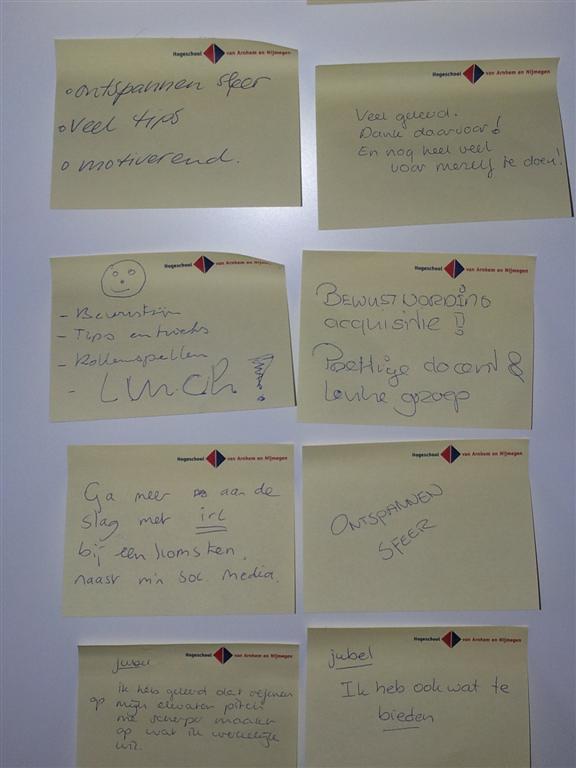 Hogeschool van Arnhem en Nijmegen
ontspannen sfeer
veel tips
motiverend.
Hogeschool van Arnhem en Nijmegen
Veel geleerd.
Dank daarvoor!
En nog heel veel
voor mezelf te doen!
Hogeschool van Arnhem en Nijmegen
- Bewustzijn
- Tips en tricks
- Rollenspellen
- LUNCH!
Hogeschool van Arnhem en Nijmegen
BEWUSTWORDING
acquisitie !!
Prettige docent &
leuke groep
Hogeschool van Arnhem en Nijmegen
Ga meer aan de
slag met irl
bijeenkomsten.
naast m'n soc. media.
Hogeschool van Arnhem en Nijmegen
ONTSPANNEN
SFEER
Hogeschool van Arnhem en Nijmegen
jubel
ik heb geleerd dat oefenen
op mijn elevator pitch
me scherper maakt
op wat ik werkelijk
wil.
Hogeschool van Arnhem en Nijmegen
jubel
Ik heb ook wat te
bieden